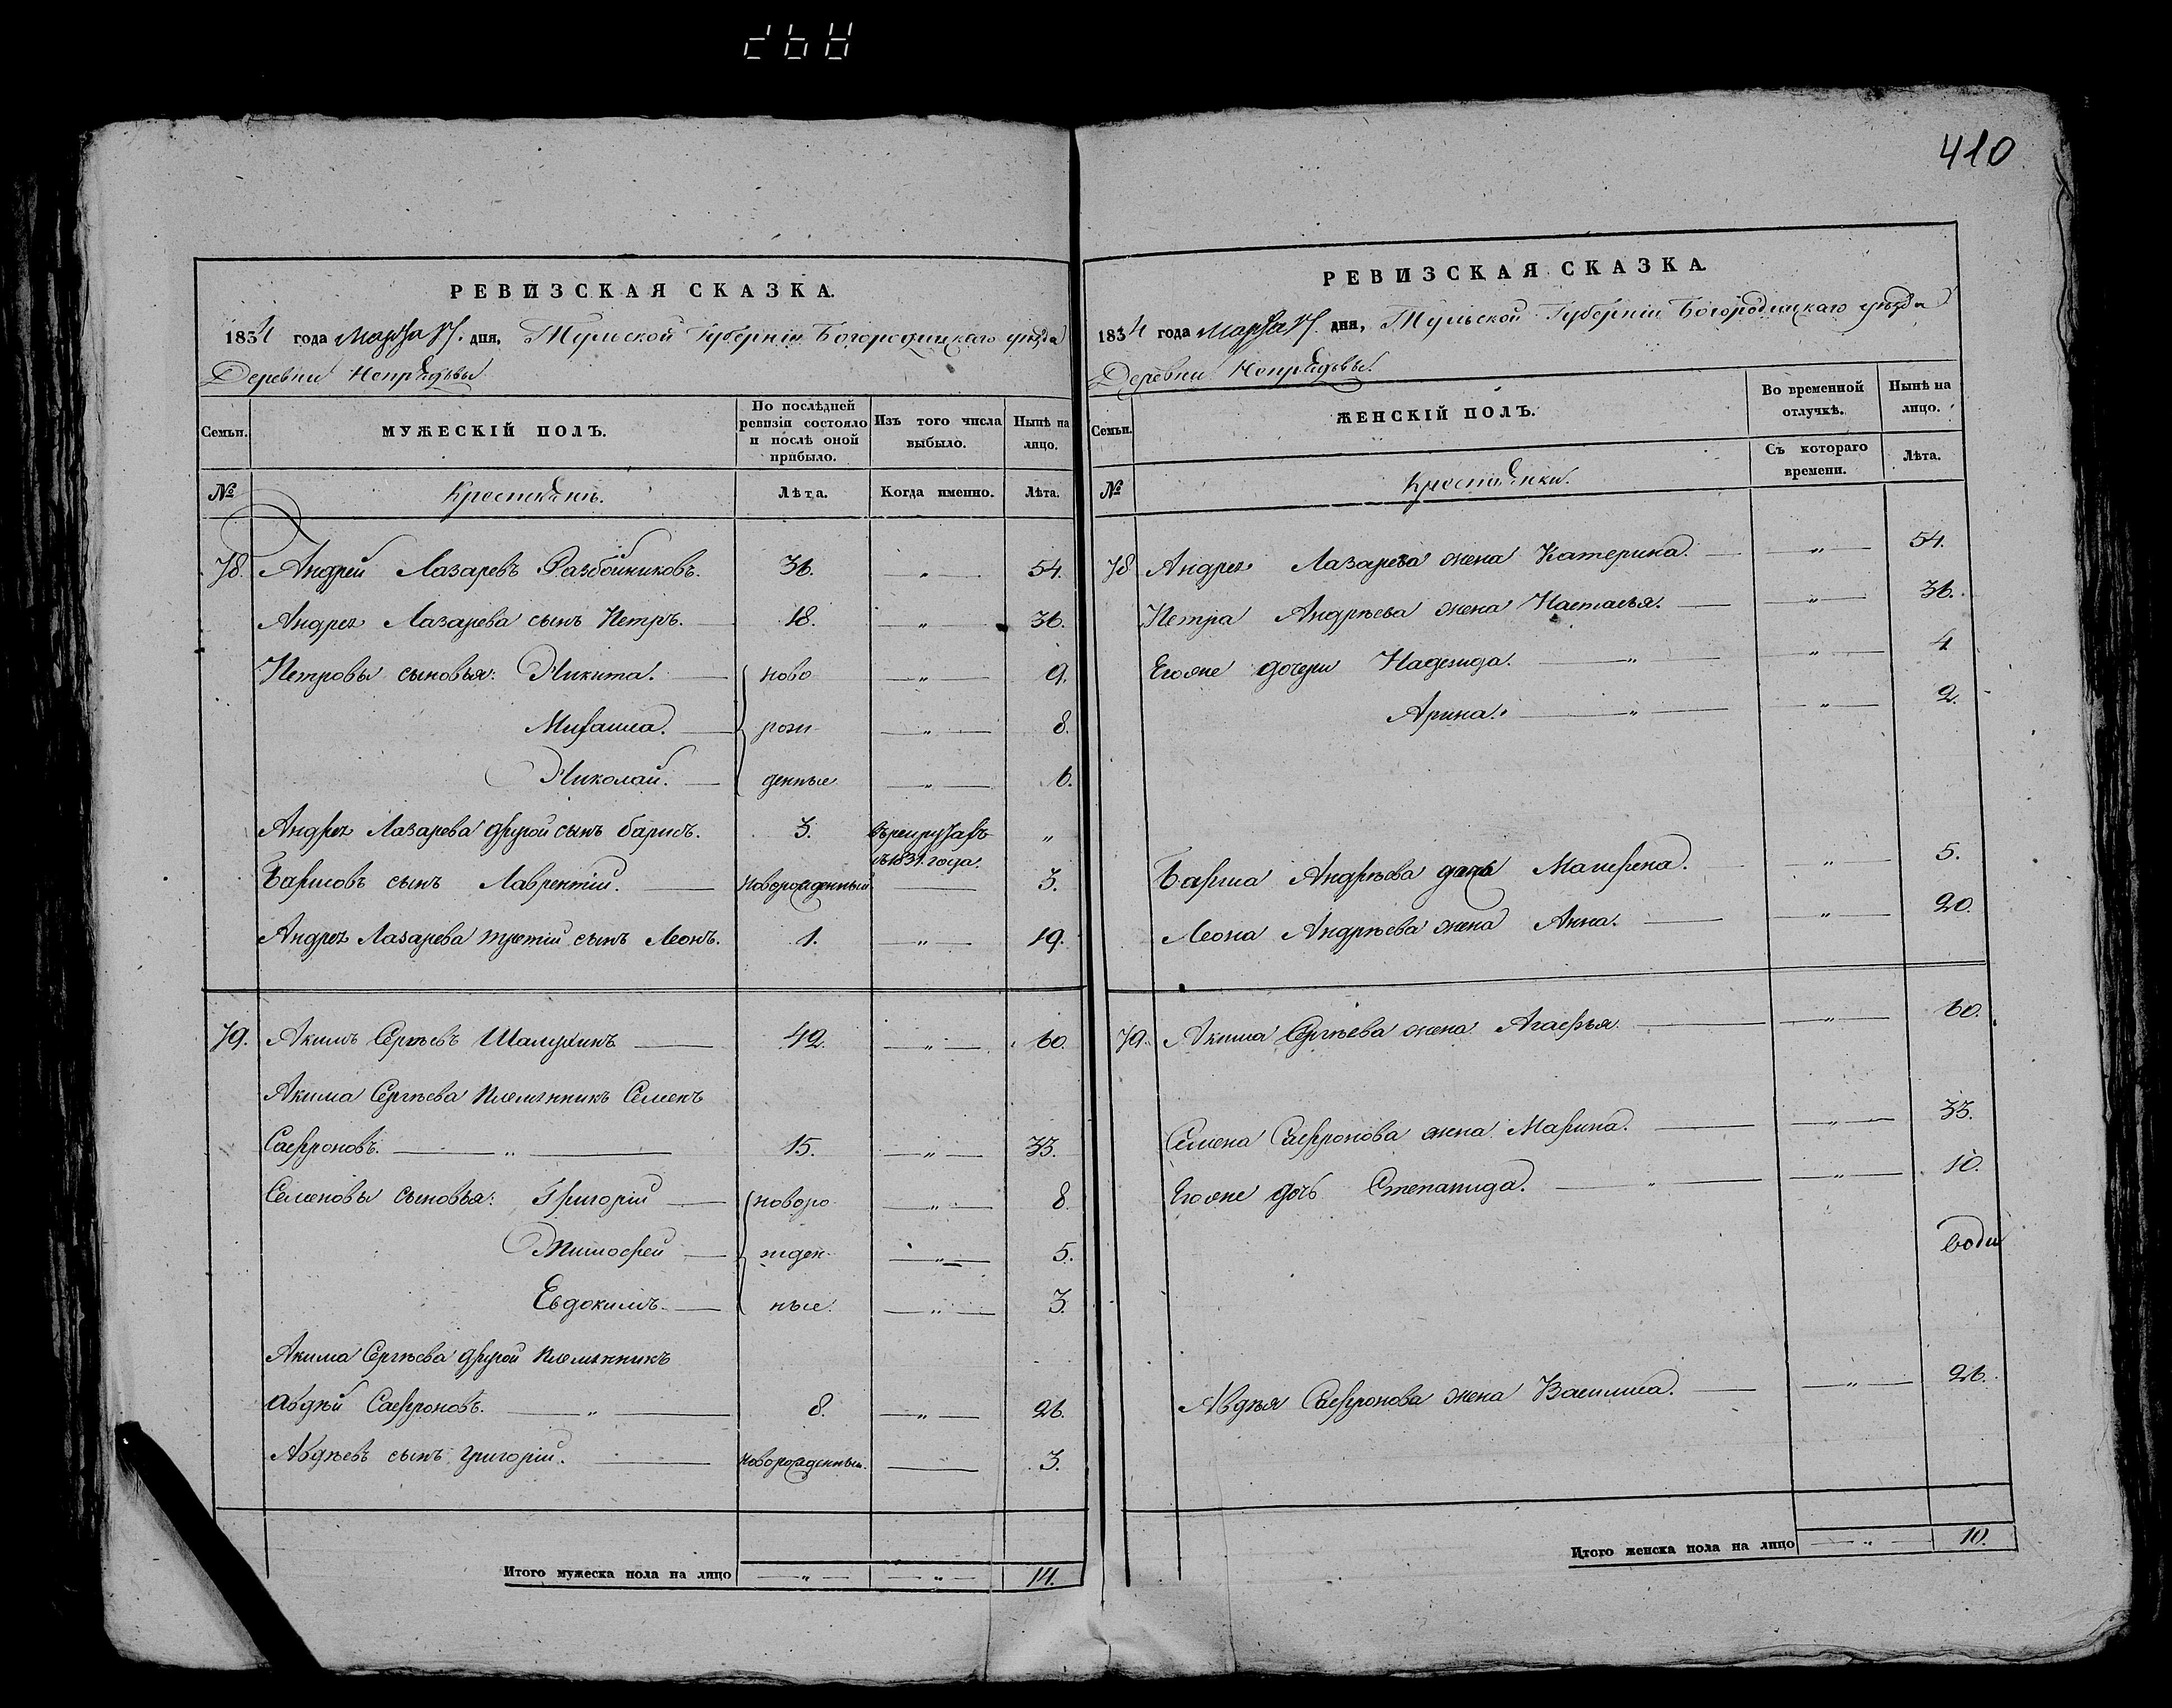 410
РЕВИЗСКАЯ СКАЗКА.
1834 года Марта 17. дня, Тульской Губерніи Богородицкаго уѣзда
Деревни Непрядвы
Семьи. МУЖЕСКІЙ ПОЛЪ. По послѣдней ревизіи состояло и послѣ оной прибыло. Изъ того числа выбыло. Нынѣ на лицо.
№ Крестьянъ. Лѣта. Когда именно. Лѣта.
78. Андрей Лазаревъ Разбойниковъ. 36. — „ — 54.
Андрея Лазарева сынъ Петръ. — 18. — „ — 36.
Петровы сыновья: Никита. — ново — „ — 9.
Михаила. — рож — „ — 8.
Николай. — денные — „ — 6.
Андрея Лазарева другой сынъ Барисъ. 3. въ рекрутахъ съ 1831. года. „
Барисовъ сынъ Лаврентій. — новорожденный — 3.
Андрея Лазарева третій сынъ Леонъ. 1. — „ — 19.
79. Акимъ Сергѣевъ Шалухинъ — 42. — „ — 60.
Акима Сергѣева племянникъ Семенъ
Сафроновъ. — „ — 15. — „ — 33.
Семеновы сыновья: Григорій — новоро — „ — 8.
Тимофей — жден — „ — 5.
Евдокимъ. — ные. — „ — 3.
Акима Сергѣева другой племянникъ
Авдѣй Сафроновъ. — „ — 8. — „ — 26.
Авдѣевъ сынъ Григорій. — новорожденный. — 3.
Итого мужеска пола на лицо — „ — — „ — 14.
РЕВИЗСКАЯ СКАЗКА.
1834 года Марта 17. дня, Тульской Губерніи Богородицкаго уѣзда
Деревни Непрядвы.
Семьи. ЖЕНСКІЙ ПОЛЪ. Во временной отлучкѣ. Нынѣ на лицо.
№ Крестьянки. Съ котораго времени. Лѣта.
78 Андрея Лазарева жена Катерина. — — „ — 54.
Петра Андрѣева жена Настасья. — — „ — 36.
Егояже дочери Надежда. — „ — — „ — 4
Арина. — „ — — „ — 2.
Бариса Андрѣева дочь Матрена. — — „ — 5.
Леона Андрѣева жена Анна. — — „ — 20.
79. Акима Сергѣева жена Агафья. — — „ — 60.
Семена Сафронова жена Марина. — — „ — 33.
Егояже дочь Степанида. — „ — — „ — 10.
Авдѣя Сафронова жена Василиса. — — „ — 26.
Итого женска пола на лицо — „ — 10.